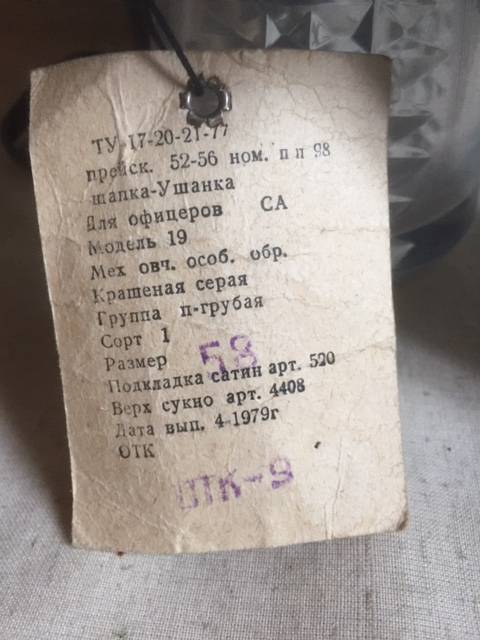 ТУ 17-20-21-77
прейск. 52-56 ном. п п 98
шапка-Ушанка
Для офицеров СА
Модель 19
Мех овч. особ. обр.
Крашеная серая
Группа п-грубая
Сорт 1
Размер 58
Подкладка сатин арт. 520
Верх сукно арт. 4408
Дата вып. 4-1979г
ОТК
ОТК-9